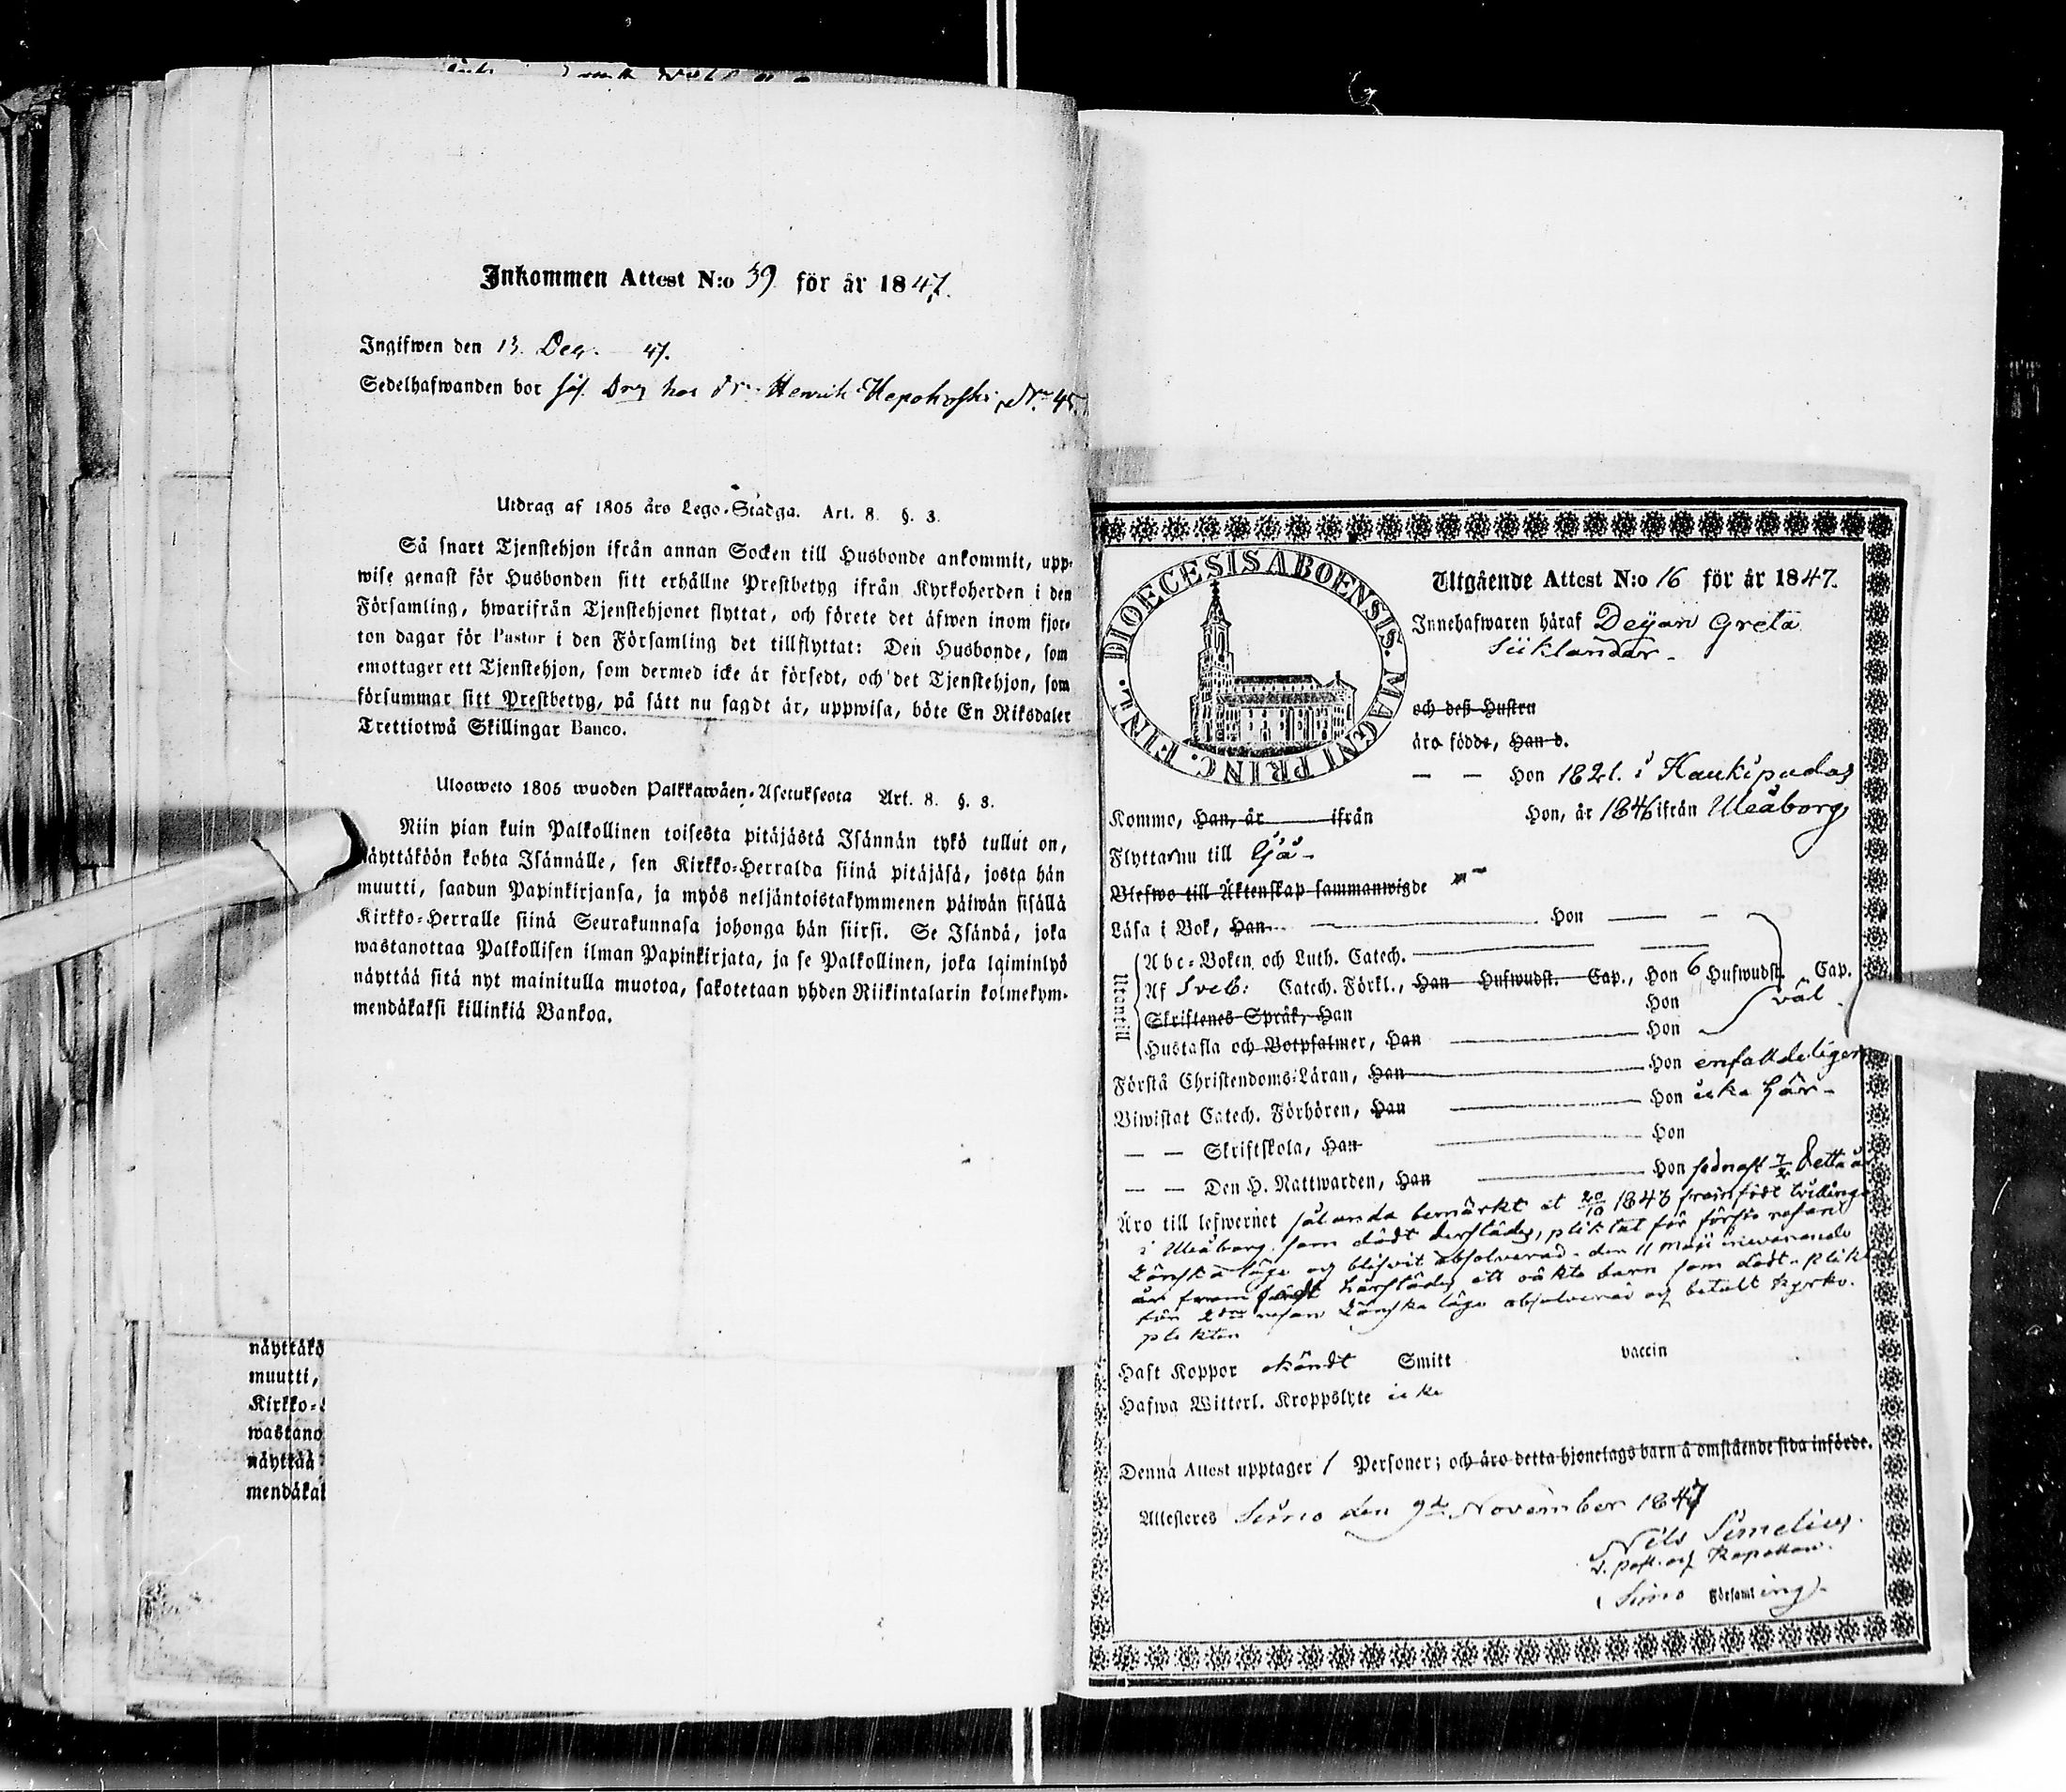 Inkommen Attest N:o 39 för år 1847.
Ingifwen den 13. Dec. 47.
Sedelhafwanden bor hos Henrik Kepokoski, N:o 45
Utdrag af 1805 års Lego-Stadga. Art. 8. §. 3.
Så snart Tjenstehjon ifrån annan Socken till Husbonde ankommit, upp-
wise genast för Husbonden sitt erhållne Prestbetyg ifrån Kyrkoherden i den
Församling, hwarifrån Tjenstehjonet flyttat, och förete det äfwen inom fjor-
ton dagar för Pastor i den Församling det tillflyttat: Den Husbonde, som
emottager ett Tjenstehjon, som dermed icke är försedt, och det Tjenstehjon, som
försummar sitt Prestbetyg, på sätt nu sagdt är, uppwisa, böte En Riksdaler
Trettiotwå Skillingar Banco.
Ulosweto 1805 wuoden Palkkawäen-Asetuksesta Art. 8. §. 3.
Niin pian kuin Palkollinen toisesta pitäjästä Isännän tykö tullut on,
näyttäköön kohta Isännälle, sen Kirkko-Herralda siinä pitäjäsä, josta hän
muutti, saadun Papinkirjansa, ja myös neljäntoistakymmenen päiwän sisällä
Kirkko-Herralle siinä Seurakunnasa johonga hän siirsi. Se Isändä, joka
wastanottaa Palkollisen ilman Papinkirjata, ja se Palkollinen, joka laiminlyö
näyttää sitä nyt mainitulla muotoa, sakotetaan yhden Riikintalarin kolmekym-
mendäkaksi killinkiä Bankoa.
näyttäkö
muutti,
Kirkko-
wastano
näyttää
mendäkak
DIOECESIS ABOENSIS. MAGNI PRINC. FINL.
Utgående Attest N:o 16 för år 1847.
Innehafwaren häraf Deijan Greta
Siiklander
och deß Hustru
äro födde, Han d.
— — Hon 1821. i Haukipudas
Kommo, Han, år ifrån Hon, år 1846 ifrån Uleåborg
Flyttar nu till Ijå
Blefwo till Äktenskap sammanwigde
Läsa i Bok, Han Hon
Utantill
Abc-Boken och Luth. Catech.
Af Sveb: Catech. Förkl., Han Hufwudst. Cap., Hon 6 Hufwudst. Cap.
Skriftenes Språk, Han Hon väl
Hustafla och Botpsalmer, Han Hon
Förstå Christendoms-Läran, Han Hon enfaldeligen
Biwistat Catech. Förhören, Han Hon icke här
— — Skriftskola, Han Hon
— — Den H. Nattwarden, Han Hon sednast 7/2 detta år
Äro till lefwernet sålunda bemärkt at 20/10 1843 framfödt tvillingar
i Uleåborg som dödt derstädes, pliktat för första resan
Lönska läge och blifvit absolverad. den 11 Maji innevarande
år framfödt härstädes ett oäkta barn som dödt. plikt
för 2dra resan Lönska läge absolverad och betalt kyrko-
plikten
Haft Koppor okändt Smitt vaccin
Hafwa Witterl. Kroppslyte icke
Denna Attest upptager 1 Personer; och äro detta hjonelags barn å omstående sida införde.
Attesteres Simo den 9de November 1847
Nils Simelius
v. past. och Kapellan.
Simo Församling